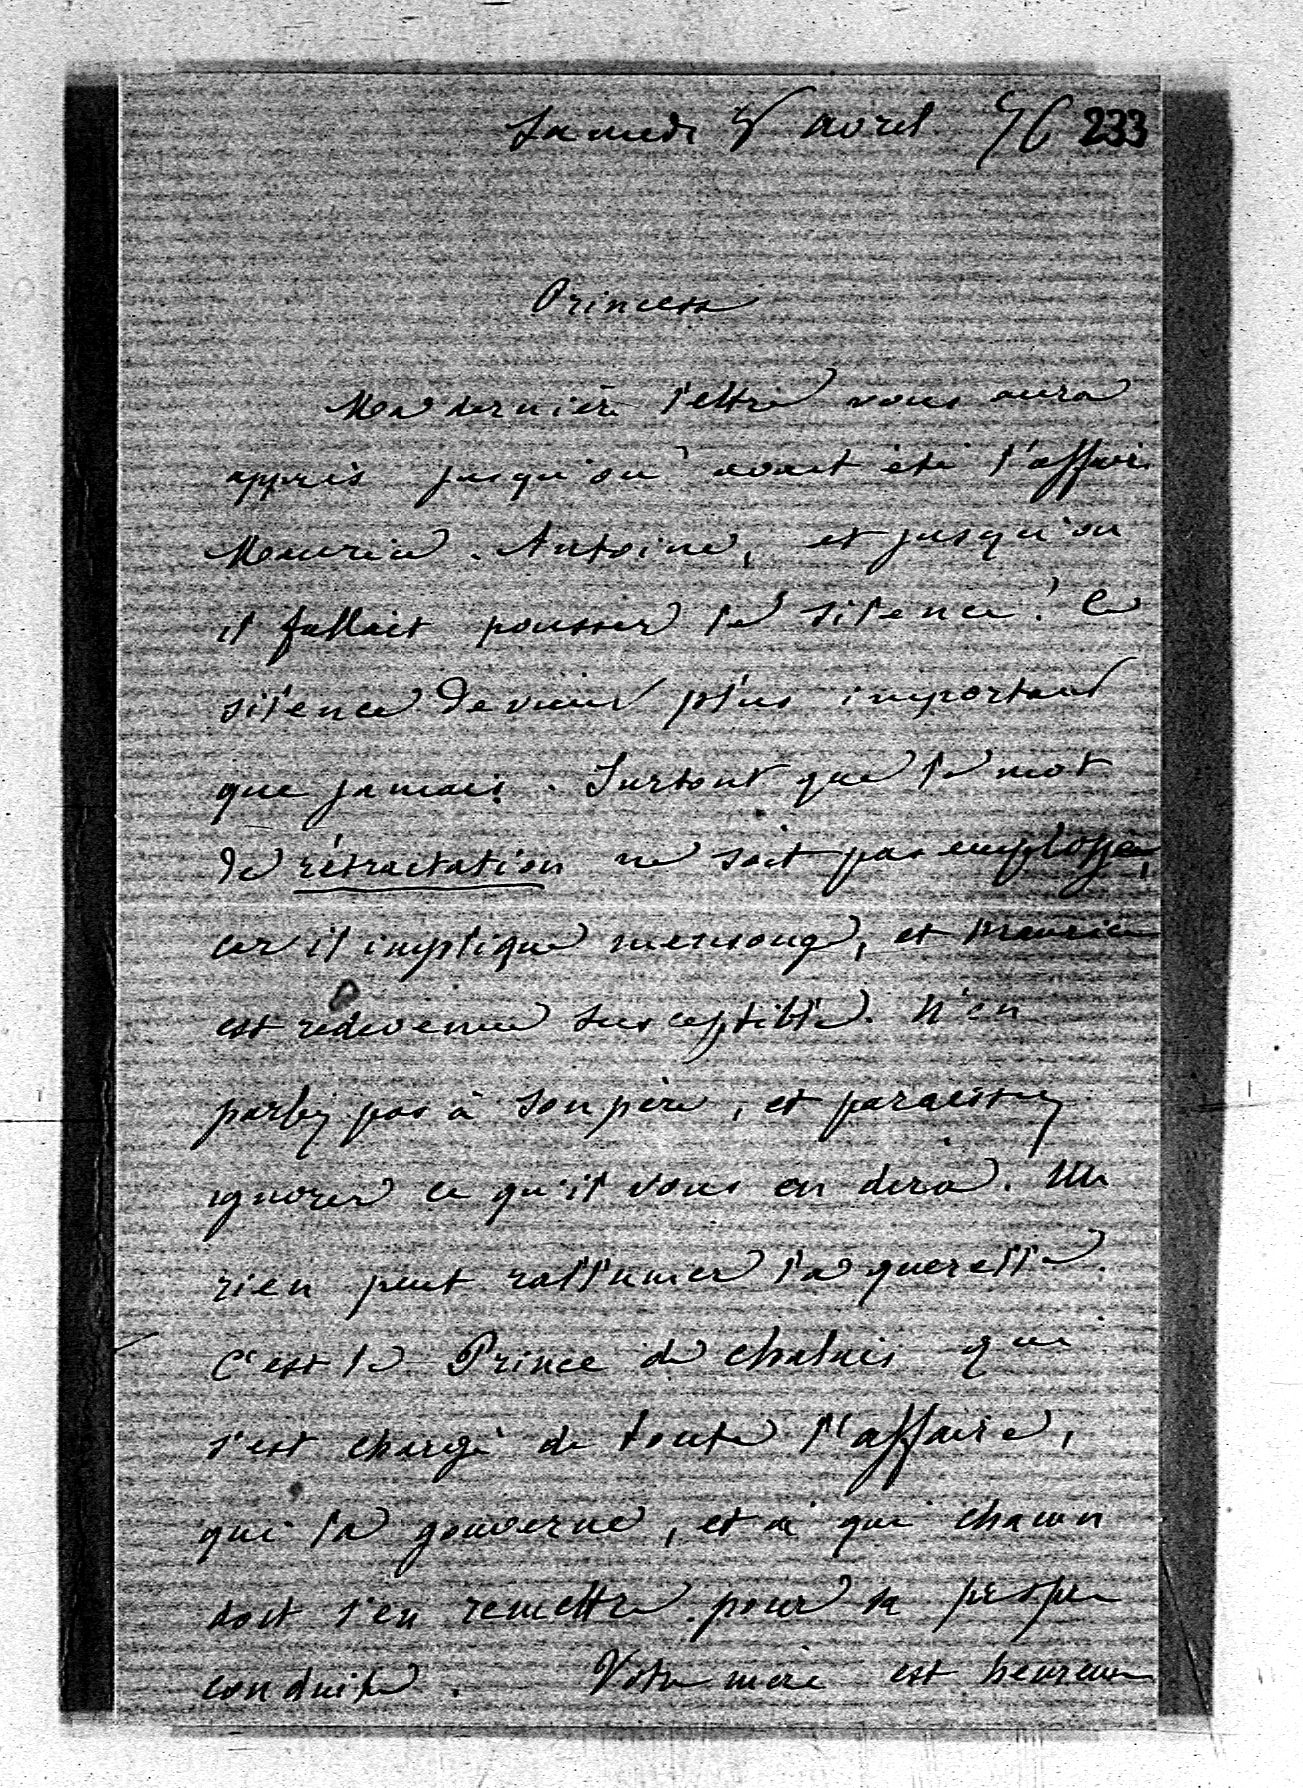 Samedi 8 avril 76 233
Princesse
Ma dernière lettre vous aura
appris jusqu'où avait été l'affaire
Maurice. Antoine, et jusqu'où
il fallait pousser le silence! Ce
silence devient plus important
que jamais. Surtout que le mot
de rétractation ne soit pas employé,
car il implique mensonge, et Maurice
est redevenu susceptible. N'en
parlez pas à son père, et paraissez
ignorer ce qu'il vous en dira. Un
rien peut rallumer la querelle.
C'est le Prince de Chalais qui
s'est chargé de toute l'affaire,
qui la gouverne, et à qui chacun
doit s'en remettre pour sa propre
conduite. Votre mère est heureuse